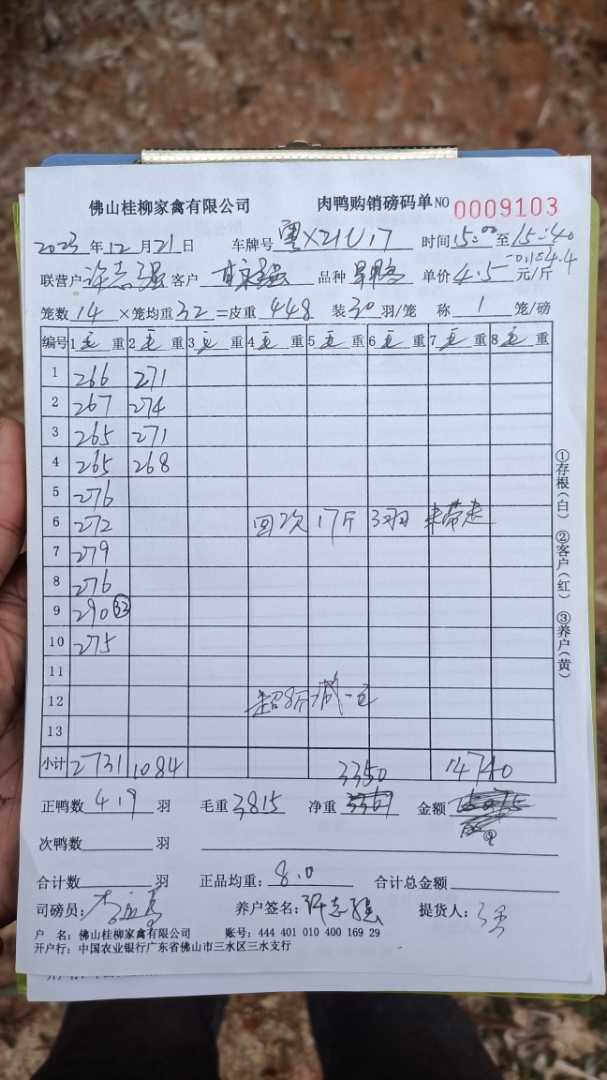 佛山桂柳家禽有限公司 肉鸭购销磅码单 NO 0009103
2023年12月21日 车牌号 粤X21U17 时间15:00至15:40
-0.1=4.4
联营户 许志强 客户 品种 单价4.5元/斤
笼数14×笼均重32=皮重448 装30羽/笼 称1笼/磅
编号 1毛重 2毛重 3毛重 4毛重 5毛重 6毛重 7毛重 8毛重
1 266 271
2 267 274
3 265 271
4 265 268
5 276
6 272 回次 17斤 3羽 未带走
7 279
8 276
9 290 33
10 275
11
12 超8斤减一毛
13
小计 2731 1084 3350 14740
正鸭数419羽 毛重3815 净重3367 金额
次鸭数 羽
合计数 羽 正品均重:8.0 合计总金额
司磅员: 养户签名:许志强 提货人:
户 名: 佛山桂柳家禽有限公司 账号: 444 401 010 400 169 29
开户行: 中国农业银行广东省佛山市三水区三水支行
①存根(白) ②客户(红) ③养户(黄)